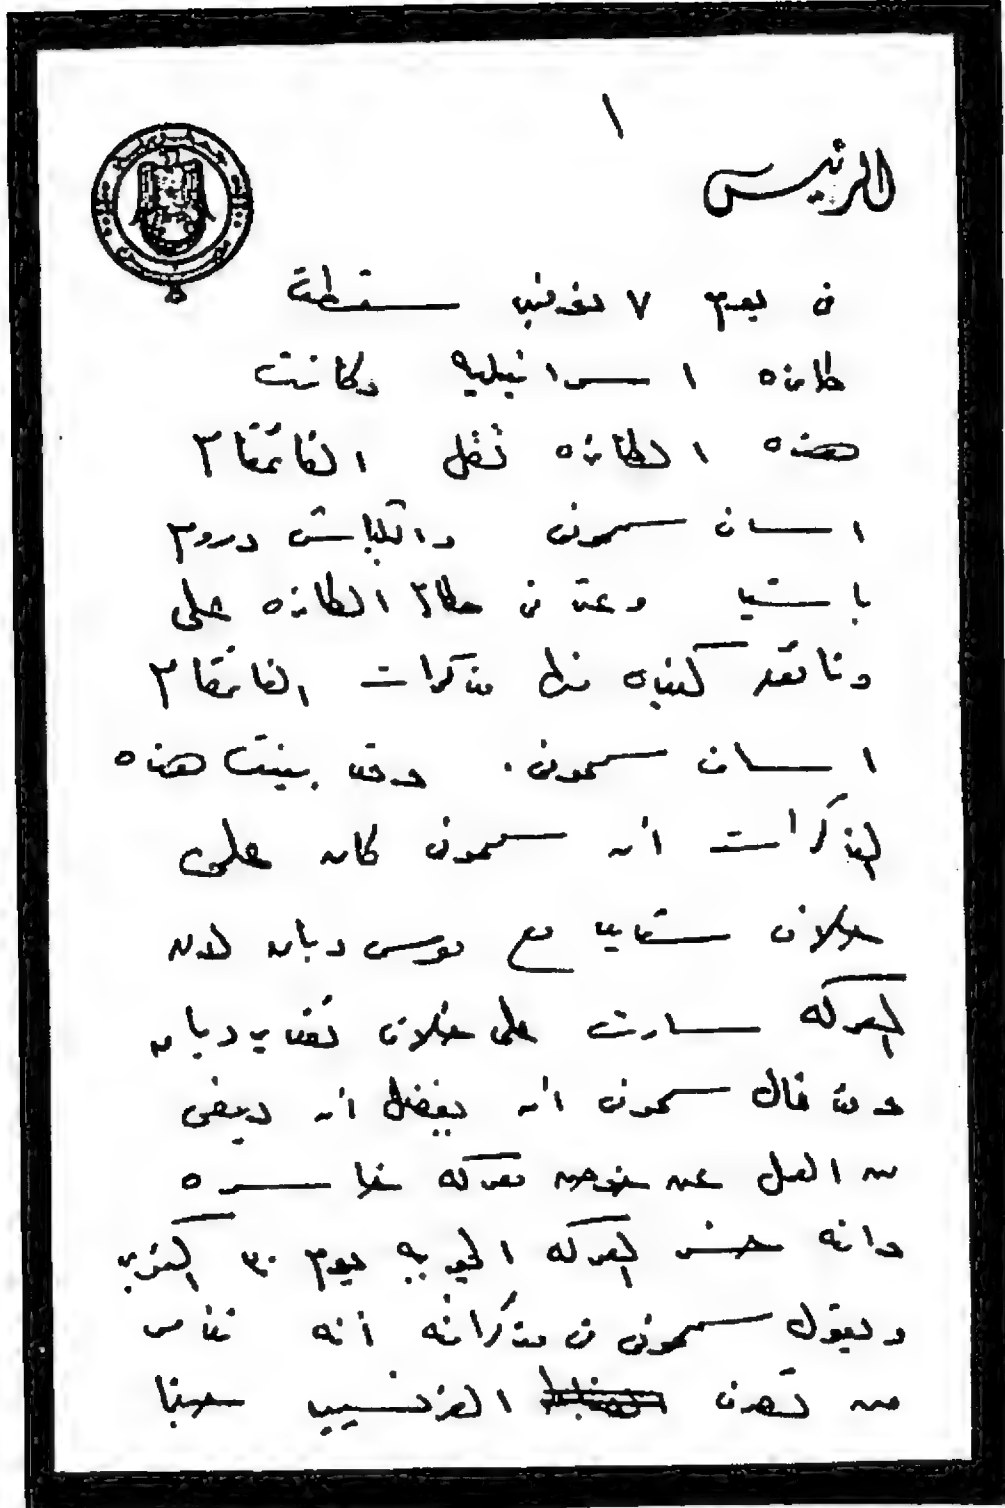 ١
الرئيس
فى يوم ٧ نوفمبر سقطت
طائره اسرائيليه وكانت
هذه الطائره تنقل القائمقام
اساف سمحونى والبكباشى
وعثر فى حطام الطائره على
مذكرات القائمقام
اساف سمحونى . وقد بينت هذه
المذكرات ان سمحونى كان على
خلاف شديد مع موسى ديان لان
المعركه سارت على خلاف ديان
وقد قال سمحونى انه يفضل ان يعفى
من العمل عن خوض معركه خاسره
وانه خسر المعركه الجويه يوم ٣٠ اكتوبر
ويقول سمحونى فى مذكراته انه
من تصرف الفرنسيين حينما